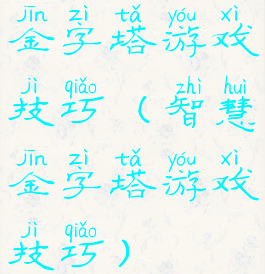 jīn zì tǎ yóu xì
金字塔游戏
jì qiǎo zhì huì
技巧（智慧
jīn zì tǎ yóu xì
金字塔游戏
jì qiǎo
技巧）